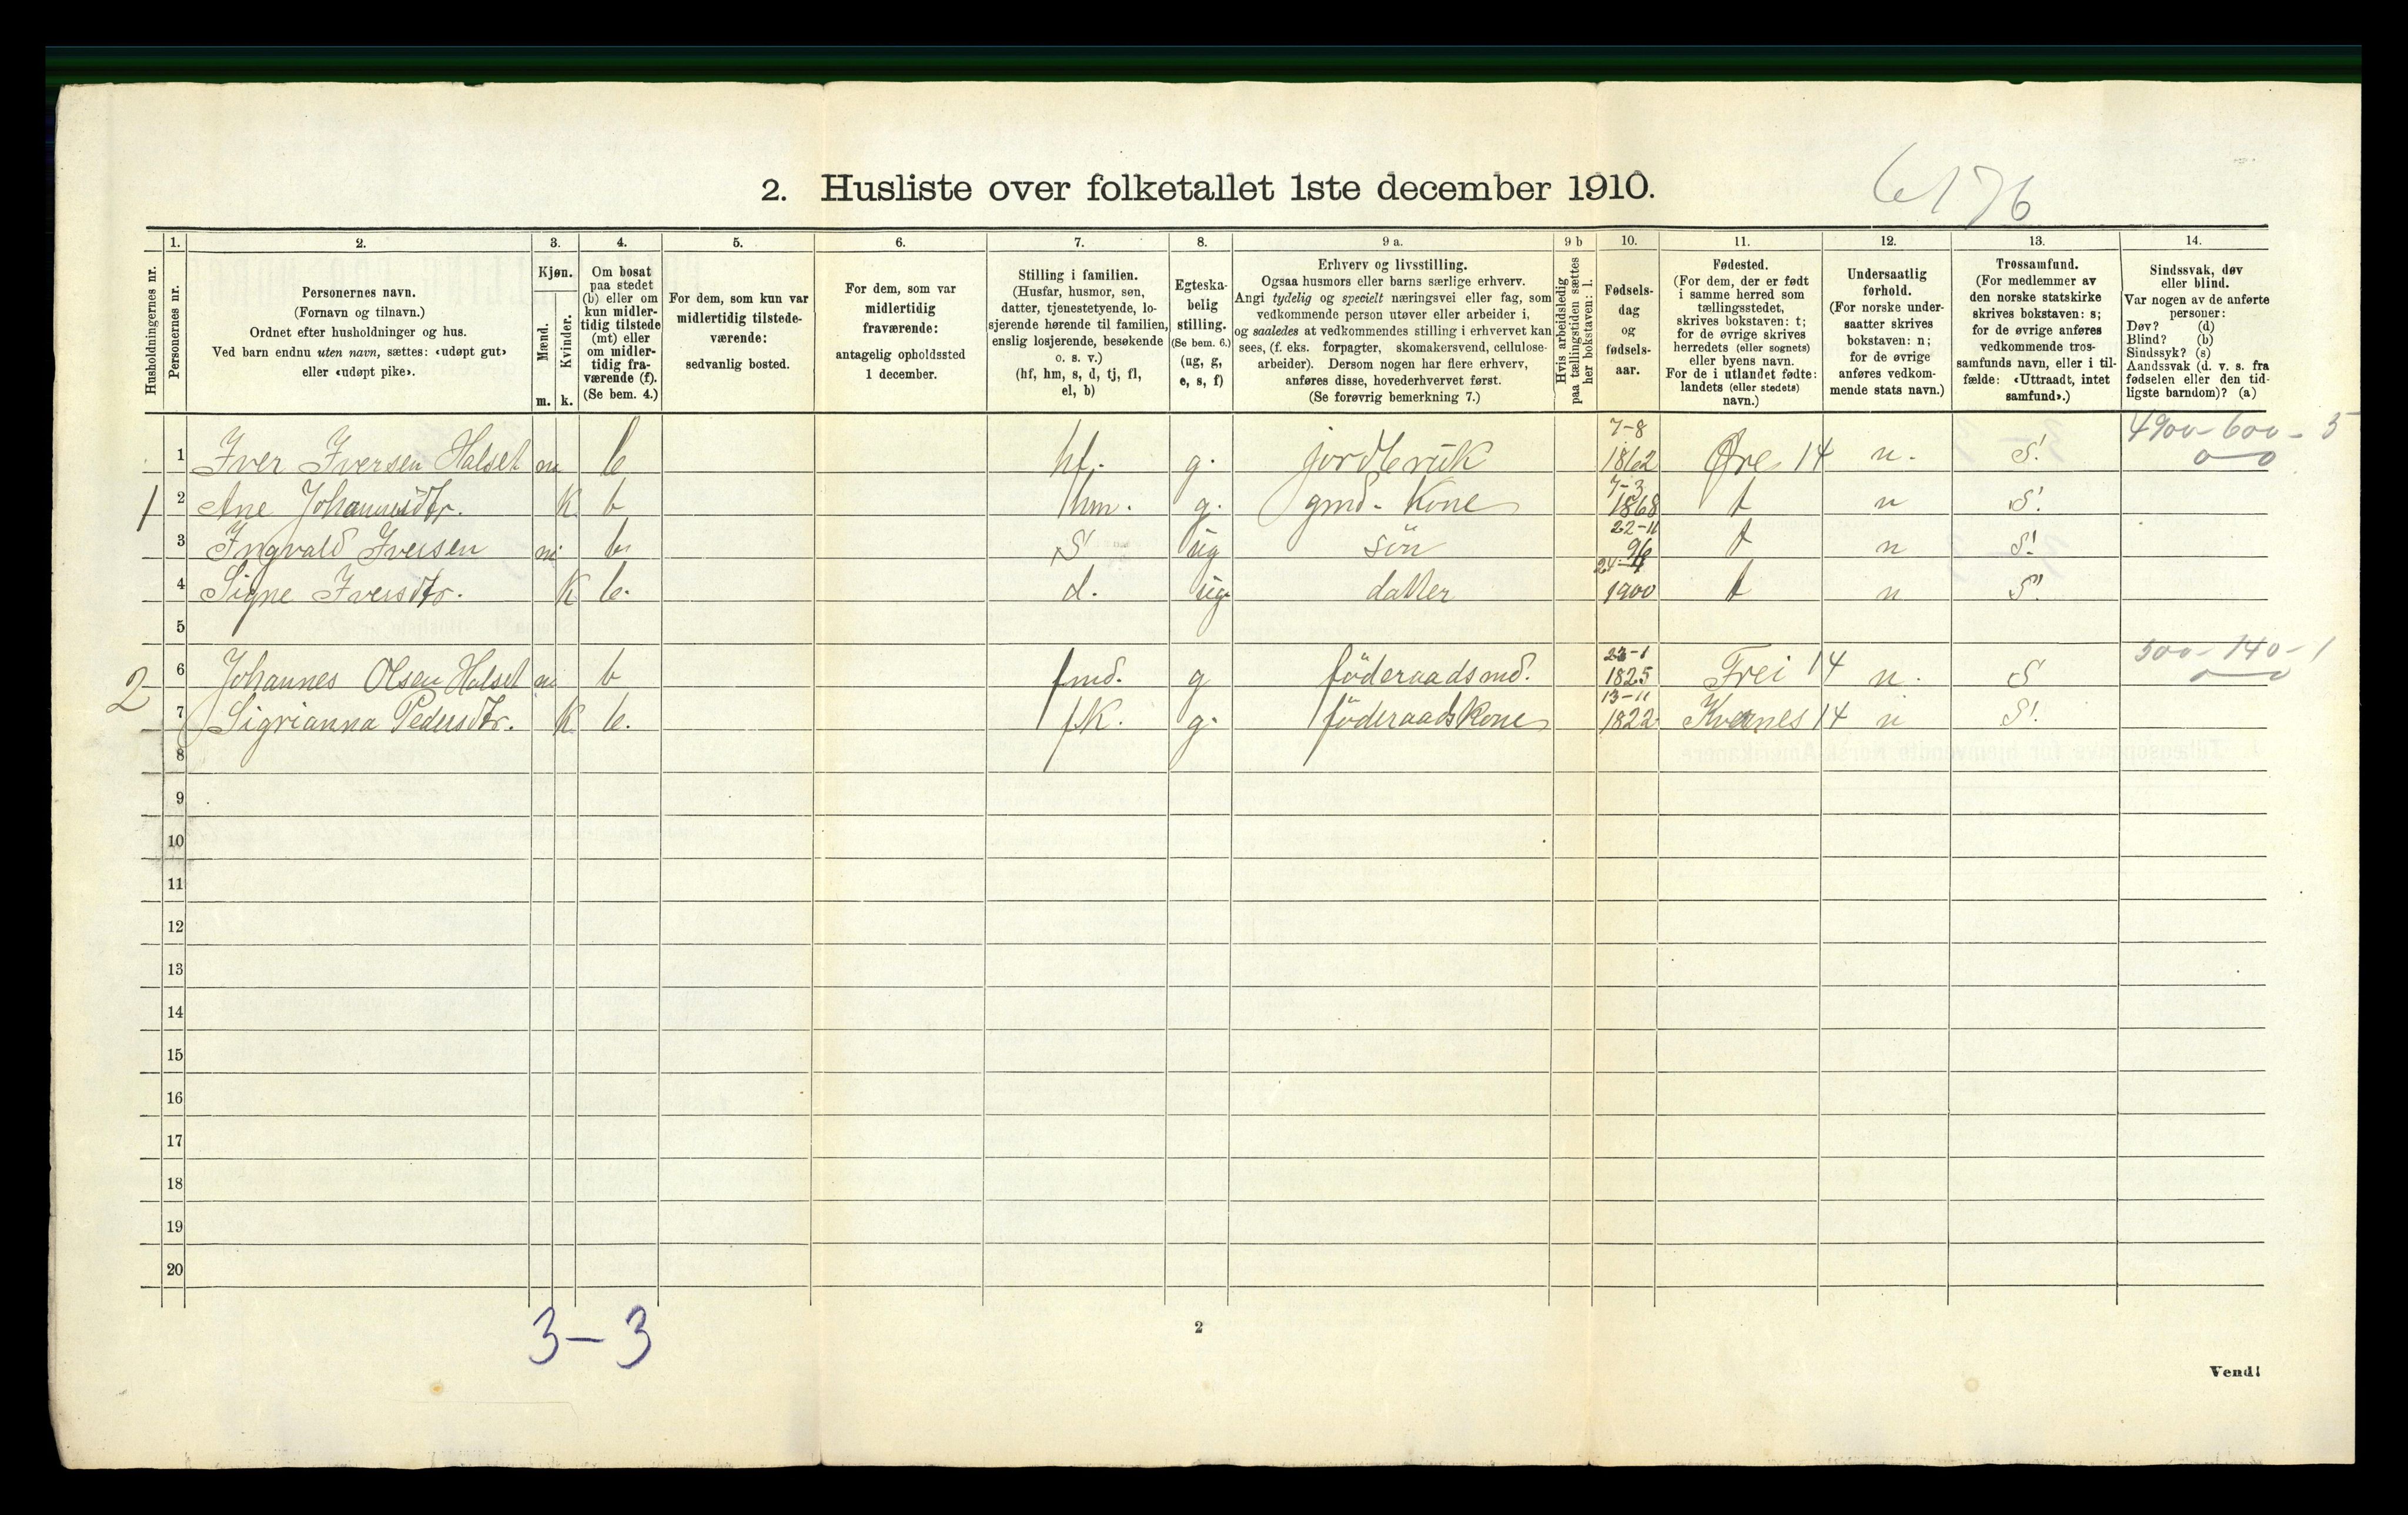 2. Husliste over folketallet 1ste december 1910.
6176
1. 2. 3. 4. 5. 6. 7. 8. 9 a. 9 b 10. 11. 12. 13. 14.
Husholdningernes nr.
Personernes nr.
Personernes navn.
(Fornavn og tilnavn.)
Ordnet efter husholdninger og hus.
Ved barn endnu uten navn, sættes: «udøpt gut»
eller «udøpt pike».
Kjøn.
Mænd.
Kvinder.
m. k.
Om bosat
paa stedet
(b) eller om
kun midler-
tidig tilstede
(mt) eller
om midler-
tidig fra-
værende (f).
(Se bem. 4.)
For dem, som kun var
midlertidig tilstede-
værende:
sedvanlig bosted.
For dem, som var
midlertidig
fraværende:
antagelig opholdssted
1 december.
Stilling i familien.
(Husfar, husmor, søn,
datter, tjenestetyende, lo-
sjerende hørende til familien,
enslig losjerende, besøkende
o. s. v.)
(hf, hm, s, d, tj, fl,
el, b)
Egteska-
belig
stilling.
(Se bem. 6.)
(ug, g,
e, s, f)
Erhverv og livsstilling.
Ogsaa husmors eller barns særlige erhverv.
Angi tydelig og specielt næringsvei eller fag, som
vedkommende person utøver eller arbeider i,
og saaledes at vedkommendes stilling i erhvervet kan
sees, (f. eks. forpagter, skomakersvend, cellulose-
arbeider). Dersom nogen har flere erhverv,
anføres disse, hovederhvervet først.
(Se forøvrig bemerkning 7.)
Hvis arbeidsledig
paa tællingstiden sættes
her bokstaven: l.
Fødsels-
dag
og
fødsels-
aar.
Fødested.
(For dem, der er født
i samme herred som
tællingsstedet,
skrives bokstaven: t;
for de øvrige skrives
herredets (eller sognets)
eller byens navn.
For de i utlandet fødte:
landets (eller stedets)
navn.)
Undersaatlig
forhold.
(For norske under-
saatter skrives
bokstaven: n;
for de øvrige
anføres vedkom-
mende stats navn.)
Trossamfund.
(For medlemmer av
den norske statskirke
skrives bokstaven: s;
for de øvrige anføres
vedkommende tros-
samfunds navn, eller i til-
fælde: «Uttraadt, intet
samfund».)
Sindssvak, døv
eller blind.
Var nogen av de anførte
personer:
Døv? (d)
Blind? (b)
Sindssyk? (s)
Aandssvak (d. v. s. fra
fødselen eller den tid-
ligste barndom)? (a)
4900 - 600 - 5
0 0
1 Iver Iversen Halset m b hf. g. jordbruk 7-8 1862 Øre 14 n. S.
1 2 Ane Johannesdtr. K b hm. g. gmd. Kone 7-3 1868 t n S.
3 Ingvald Iversen m b S ug sön 22-11 96 t n S.
4 Signe Iversdtr. K b. d. ug. datter 1900 t n S.
5
500 - 140 - 1
0 0
2 6 Johannes Olsen Halset m b fmd. g föderaadsmd. 23-1 1825 Frei 14 n. S
7 Sigrianna Pedersdtr. K b. fK. g. föderaadsKone 13-11 1822 Kvernes 14 n S.
8
9
10
11
12
13
14
15
16
17
18
19
20
3 - 3
2
Vend!